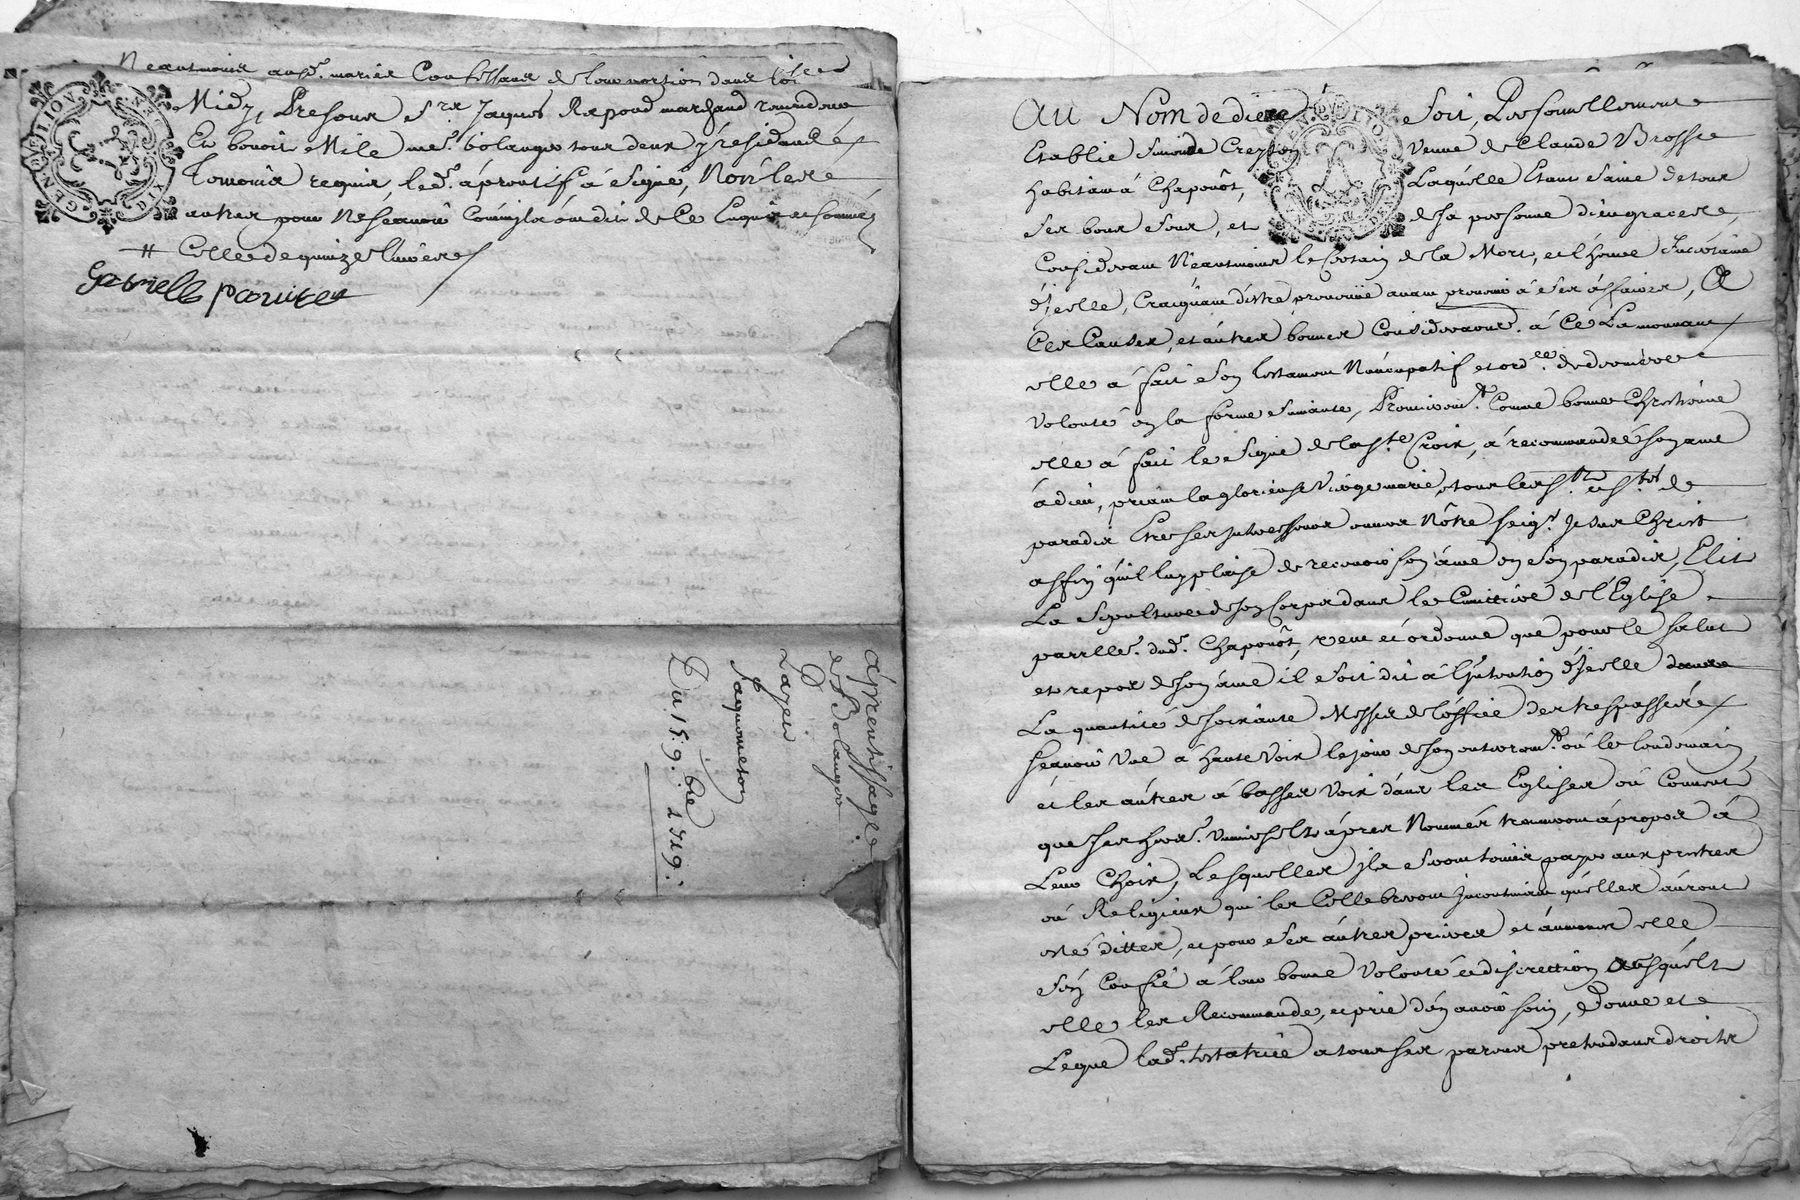 Neantmoins aud. mariés Confessans de leur portion dans
Midy, Presens Sr. Jaques Rapoud marchand
Et benoit Mile me. bolanger tous deux y residants
temoins requis, led. aprentif a signé, Non les
autres pour ne scavoir Comme ils ont dit de Ce Enquis et sommés
# Celle de quinze livres
Gabrielle
aprentissage
de Bolanger
Pr.
Lazein
Jaquemeton
Du 15. 9.bre 1719.
GEN. DE LION
Au Nom de dieu Soit, Personnellement
Establie Simonde Creppon veuve de Claude Brosse
habitant á Chaponôt, Laquelle Etant saine de tous
ses bons sens, et de sa personne dieu grace
Considerant Neantmoins le Certain de la Mort, et l'heure Incertaine
d'jcelle, Craignant d'estre prevenüe avant pourvoir á ses affaires, A
Ces Causes, et autres bonnes Considerations. á Ce La mouvant
elle á fait son testament Nuncupatif et ord.ce de derniere
volonté en la forme suivante, Premierem.t Comme bonne Chrestienne
elle á fait le signe de la s.te Croix, á recommandé son ame
á dieu, priant la glorieuse Vierge marie, et tous les s.ts et s.tes de
paradis Estre ses Intercesseurs envers Nôtre seig.r Jesus Christ
affin qu'il luy plaise de recevoir son ame en son paradis, Elit
La sepulture de son Corps dans le Cimitiere de l'Eglise
parrlle. dud. Chaponôt, veut et ordonne que pour le salut
et repos de son ame il soit dit á l'Intention d'Jcelle
La quantité de soixante Messes de l'office des trespassées
scavoir Une á haute voix le jour de son enterrem.t ou le lendemain
et les autres á basses voix dans les Eglises ou Convent
que ses hers. Universels ápres Nommés trouveront á propos á
Leur Choix, Lesquelles jls seront tenus payer aux prestres
ou Religieux qui les Cellebreront Jncontinent qu'elles auront
esté dittes, et pour ses autres prieres et aumones elle
s'en Confie á leur bonne volonté et discrettion Ausquels
elle les Recommande, et prie d'en avoir soin, Donne et
Legue lad. testatrice a tous ses parens pretendans droits